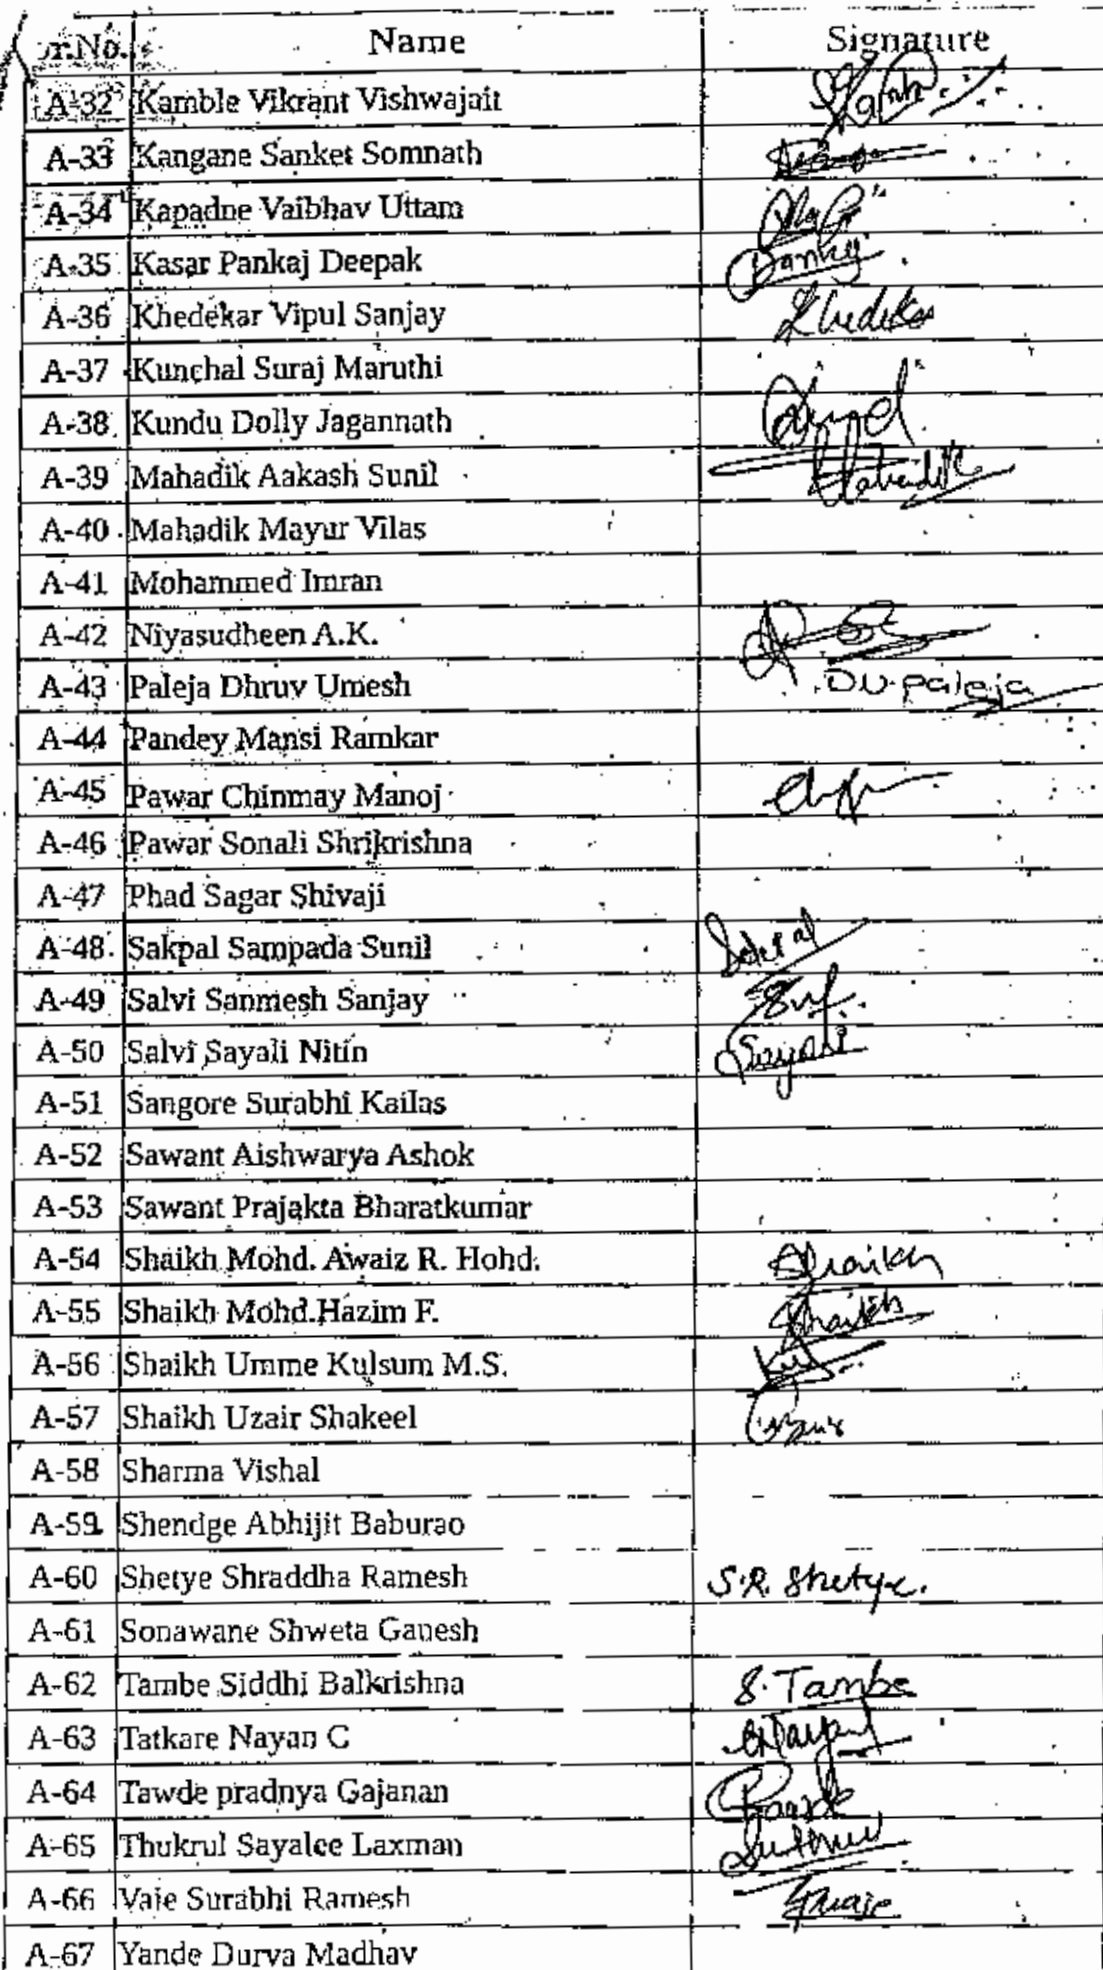 r.No. Name Signature
A-32 Kamble Vikrant Vishwajait
A-33 Kangane Sanket Somnath
A-34 Kapadne Vaibhav Uttam
A-35 Kasar Pankaj Deepak Pankaj
A-36 Khedekar Vipul Sanjay Khedekar
A-37 Kunchal Suraj Maruthi
A-38 Kundu Dolly Jagannath
A-39 Mahadik Aakash Sunil Mahadik
A-40 Mahadik Mayur Vilas
A-41 Mohammed Imran
A-42 Niyasudheen A.K.
A-43 Paleja Dhruv Umesh D.U.paleja
A-44 Pandey Mansi Ramkar
A-45 Pawar Chinmay Manoj
A-46 Pawar Sonali Shrikrishna
A-47 Phad Sagar Shivaji
A-48 Sakpal Sampada Sunil
A-49 Salvi Sanmesh Sanjay
A-50 Salvi Sayali Nitin Sayali
A-51 Sangore Surabhi Kailas
A-52 Sawant Aishwarya Ashok
A-53 Sawant Prajakta Bharatkumar
A-54 Shaikh Mohd. Awaiz R. Hohd. Shaikh
A-55 Shaikh Mohd.Hazim F. Shaikh
A-56 Shaikh Umme Kulsum M.S.
A-57 Shaikh Uzair Shakeel
A-58 Sharma Vishal
A-59 Shendge Abhijit Baburao
A-60 Shetye Shraddha Ramesh S.R. Shetye.
A-61 Sonawane Shweta Ganesh
A-62 Tambe Siddhi Balkrishna S. Tambe
A-63 Tatkare Nayan C Nayan
A-64 Tawde pradnya Gajanan
A-65 Thukrul Sayalee Laxman
A-66 Vaje Surabhi Ramesh
A-67 Yande Durva Madhav